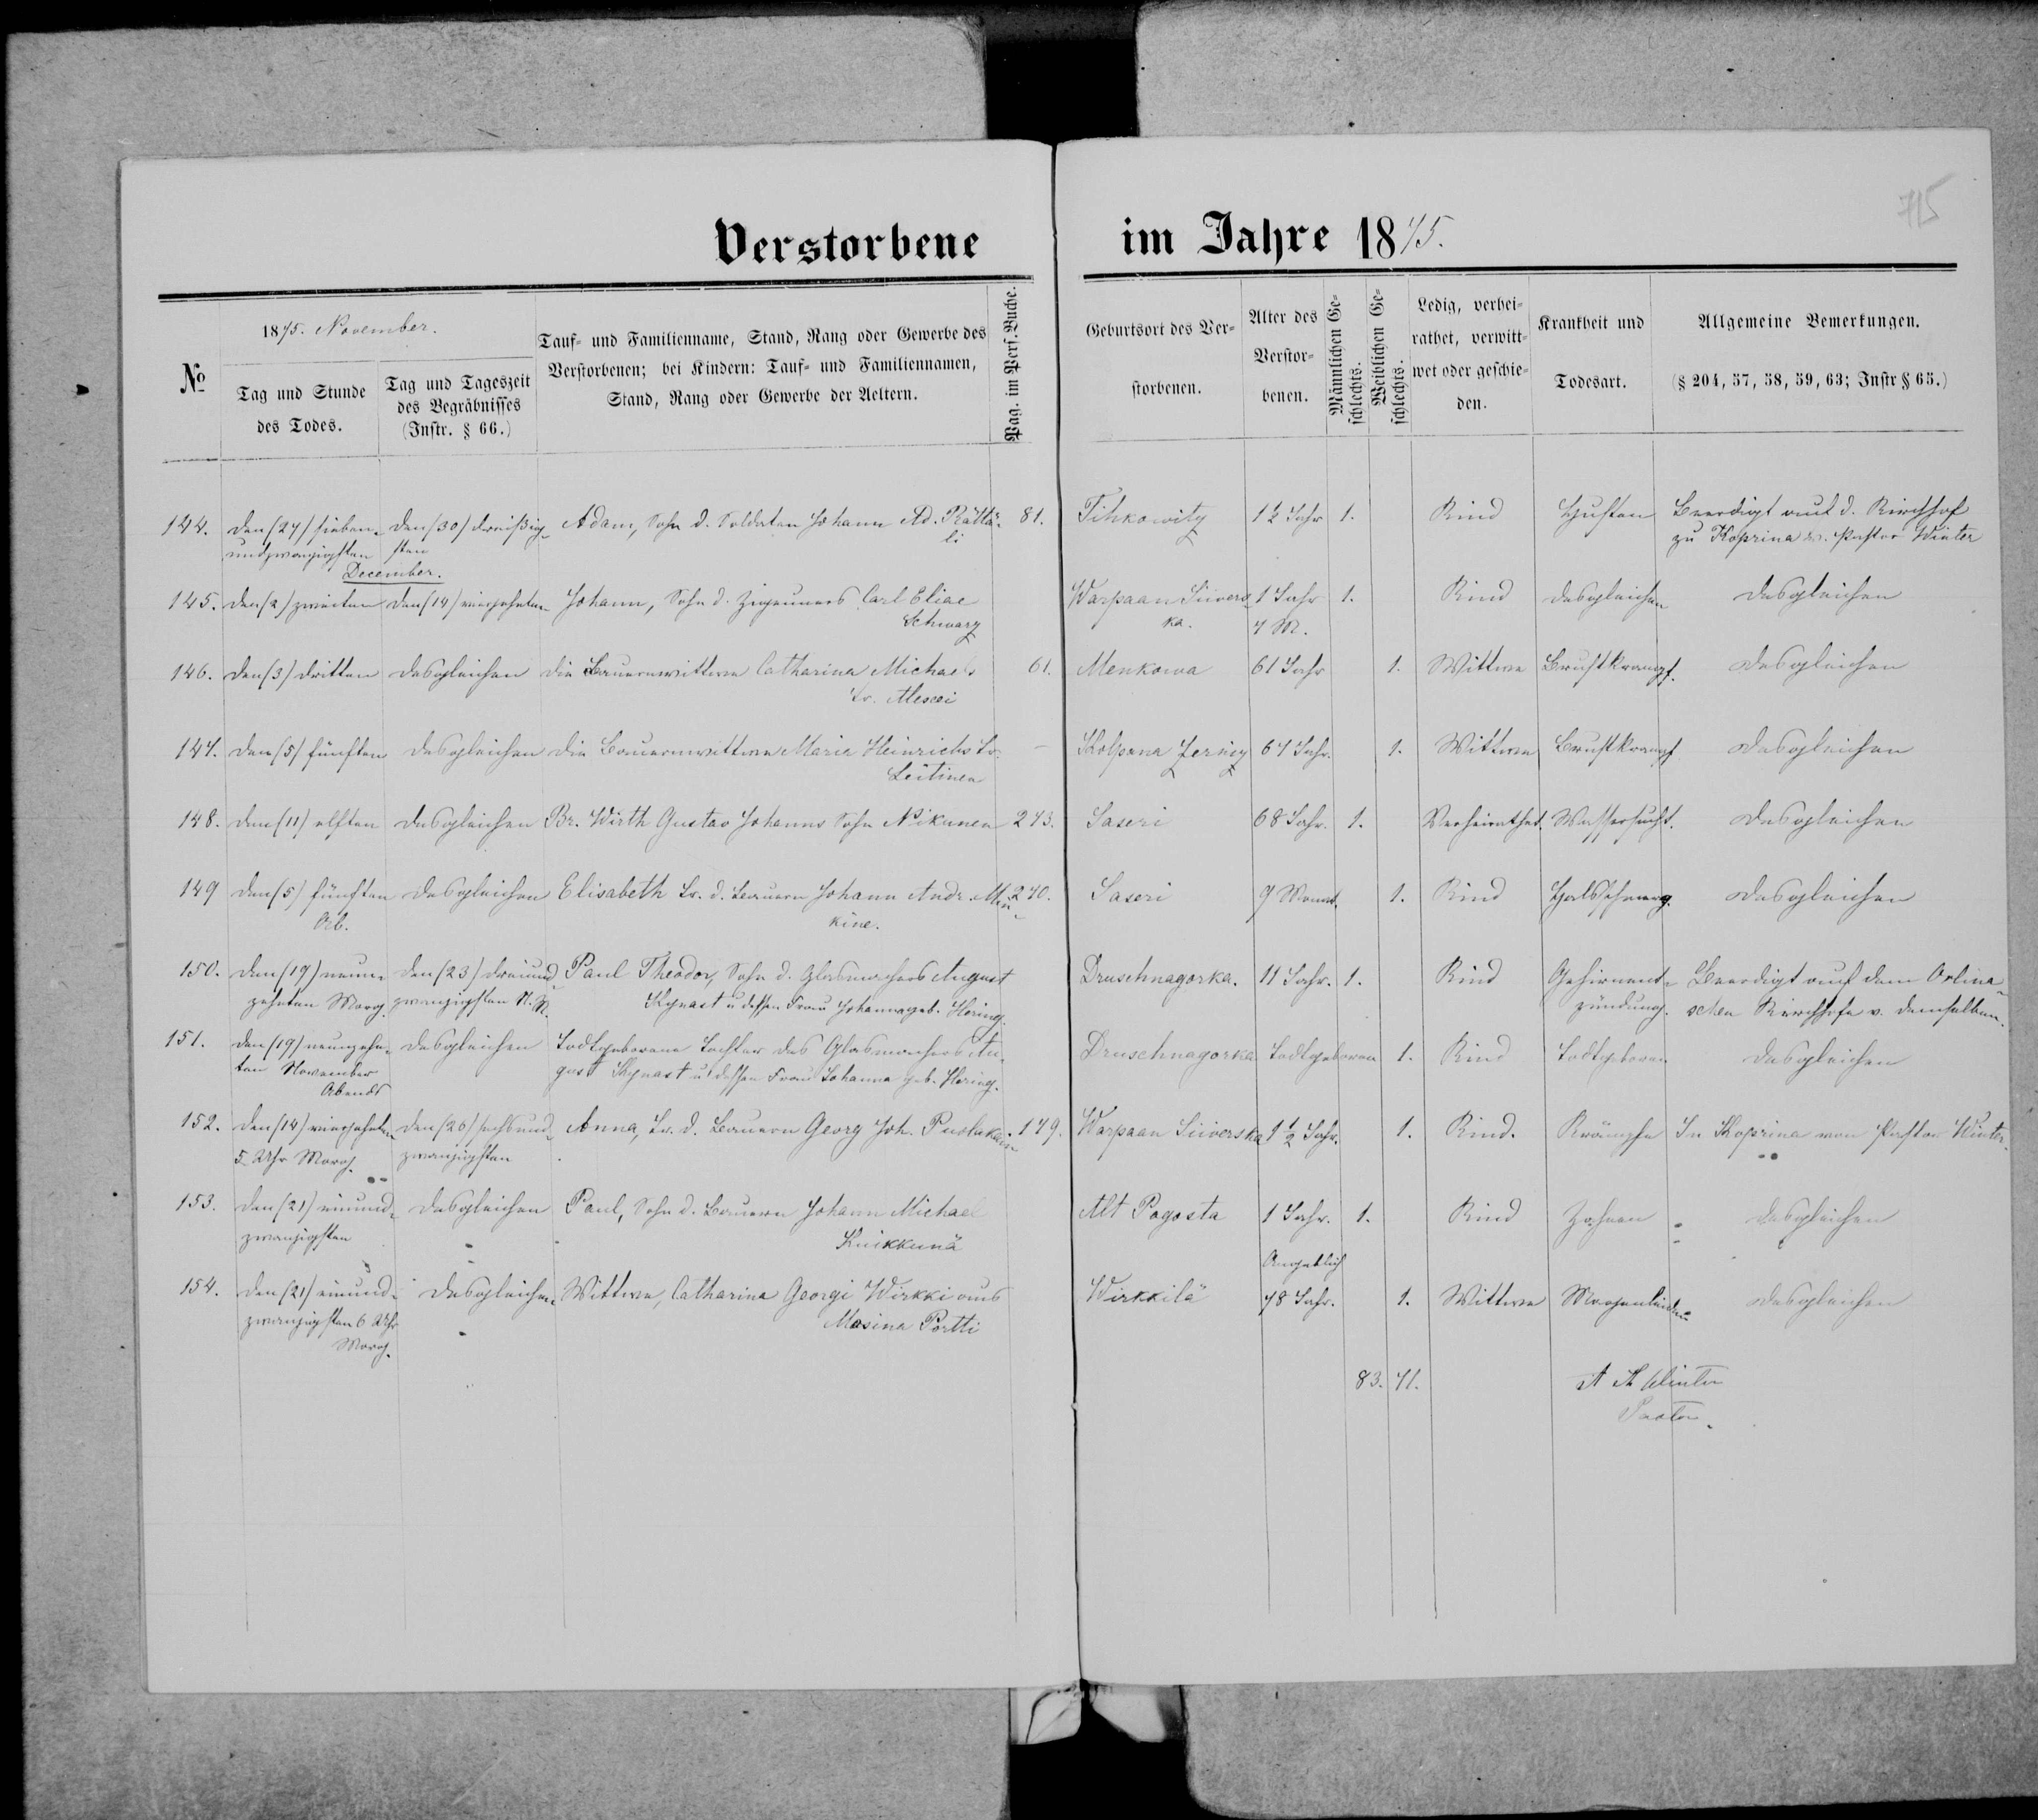 715
Verstorbene im Jahre 1875.
№
1875. November.
Tag und Stunde
des Todes.
Tag und Tageszeit
des Begräbnisses
(Instr. § 66.)
Tauf- und Familienname, Stand, Rang oder Gewerbe des
Verstorbenen; bei Kindern: Tauf- und Familiennamen,
Stand, Rang oder Gewerbe der Aeltern.
Pag. im Pers. Buche.
Geburtsort des Ver-
storbenen.
Alter des
Verstor-
benen.
Männlichen Ge-
schlechts.
Weiblichen Ge-
schlechts.
Ledig, verhei-
rathet, verwitt-
wet oder geschie-
den.
Krankheit und
Todesart.
Allgemeine Bemerkungen.
(§ 204, 57, 58, 59, 63; Instr § 65.)
144. den (27) sieben- den (30) dreißig- Adam, Sohn d. Soldaten Johann Ad. Rättä- 81. Tihkowitz 1½ Jahr 1. Kind Husten Beerdigt auf d. Kirchhof
undzwanzigsten sten li zu Koprina v. Pastor Winter
December.
145. den (2) zweiten den (14) vierzehnten Johann, Sohn d. Zigeuners Carl Eliae Warpaan Siivers- 1 Jahr 1. Kind desgleichen desgleichen
Schwarz ka. 7 M.
146. den (3) dritten desgleichen die Bauernwittwe Catharina Michaels 61. Menkowa 61 Jahr 1. Wittwe Brustkrampf. desgleichen
Tr.
147. den (5) fünften desgleichen die Bauernwittwe Maria Heinrichs Tr. – 67 Jahr. 1. Wittwe Brustkrampf desgleichen
Leitinen
148. den (11) elften desgleichen Br. Wirth Gustav Johanns Sohn Nikunen 273. Saseri 68 Jahr. 1. Verheirathet. Wassersucht. desgleichen
149 den (5) fünften desgleichen Elisabeth Tr. d. Bauern Johann Andr. Min- 270. Saseri 9 Monat. 1. Kind Halsschmerz. desgleichen
kine.
150. den (19) neun- den (23) dreiund- Paul Theodor, Sohn d. Glasmachers August Druschnagorka. 11 Jahr. 1. Kind Gehirnent- Beerdigt auf dem Orlina-
zehnten Morg. zwanzigsten N. M. Kynast u. dessen Frau Johanna geb. Hering. zündung. schen Kirchhofe v. demselben.
151. den (19) neunzehn- desgleichen Todtgeborene Tochter des Glasmachers Au- Druschnagorka Todtgeboren 1. Kind Todtgeboren desgleichen
ten November gust Kynast u. dessen Frau Johanna geb. Hering.
Abends
152. den (14) vierzehnten den (26) sechsund- Anna, Tr. d. Bauern Georg Joh. Puolakain- 179. Warpaan Siiverska 1½ Jahr. 1. Kind. Krämpfe In Koprina von Pastor Winter.
5 Uhr Morg. zwanzigsten
153. den (21) einund- desgleichen Paul, Sohn d. Bauern Johann Michael Alt Pogosta 1 Jahr. 1. Kind Zahnen desgleichen
zwanzigsten Kuikkunä
Angeblich
154. den (21) einund- desgleichen Wittwe, Catharina Georgi Wirkki aus Wirkkilä 78 Jahr. 1. Wittwe Magenleiden desgleichen
zwanzigsten 6 Uhr Masina Portti
Morg.
83. 71. Winter
Pastor.